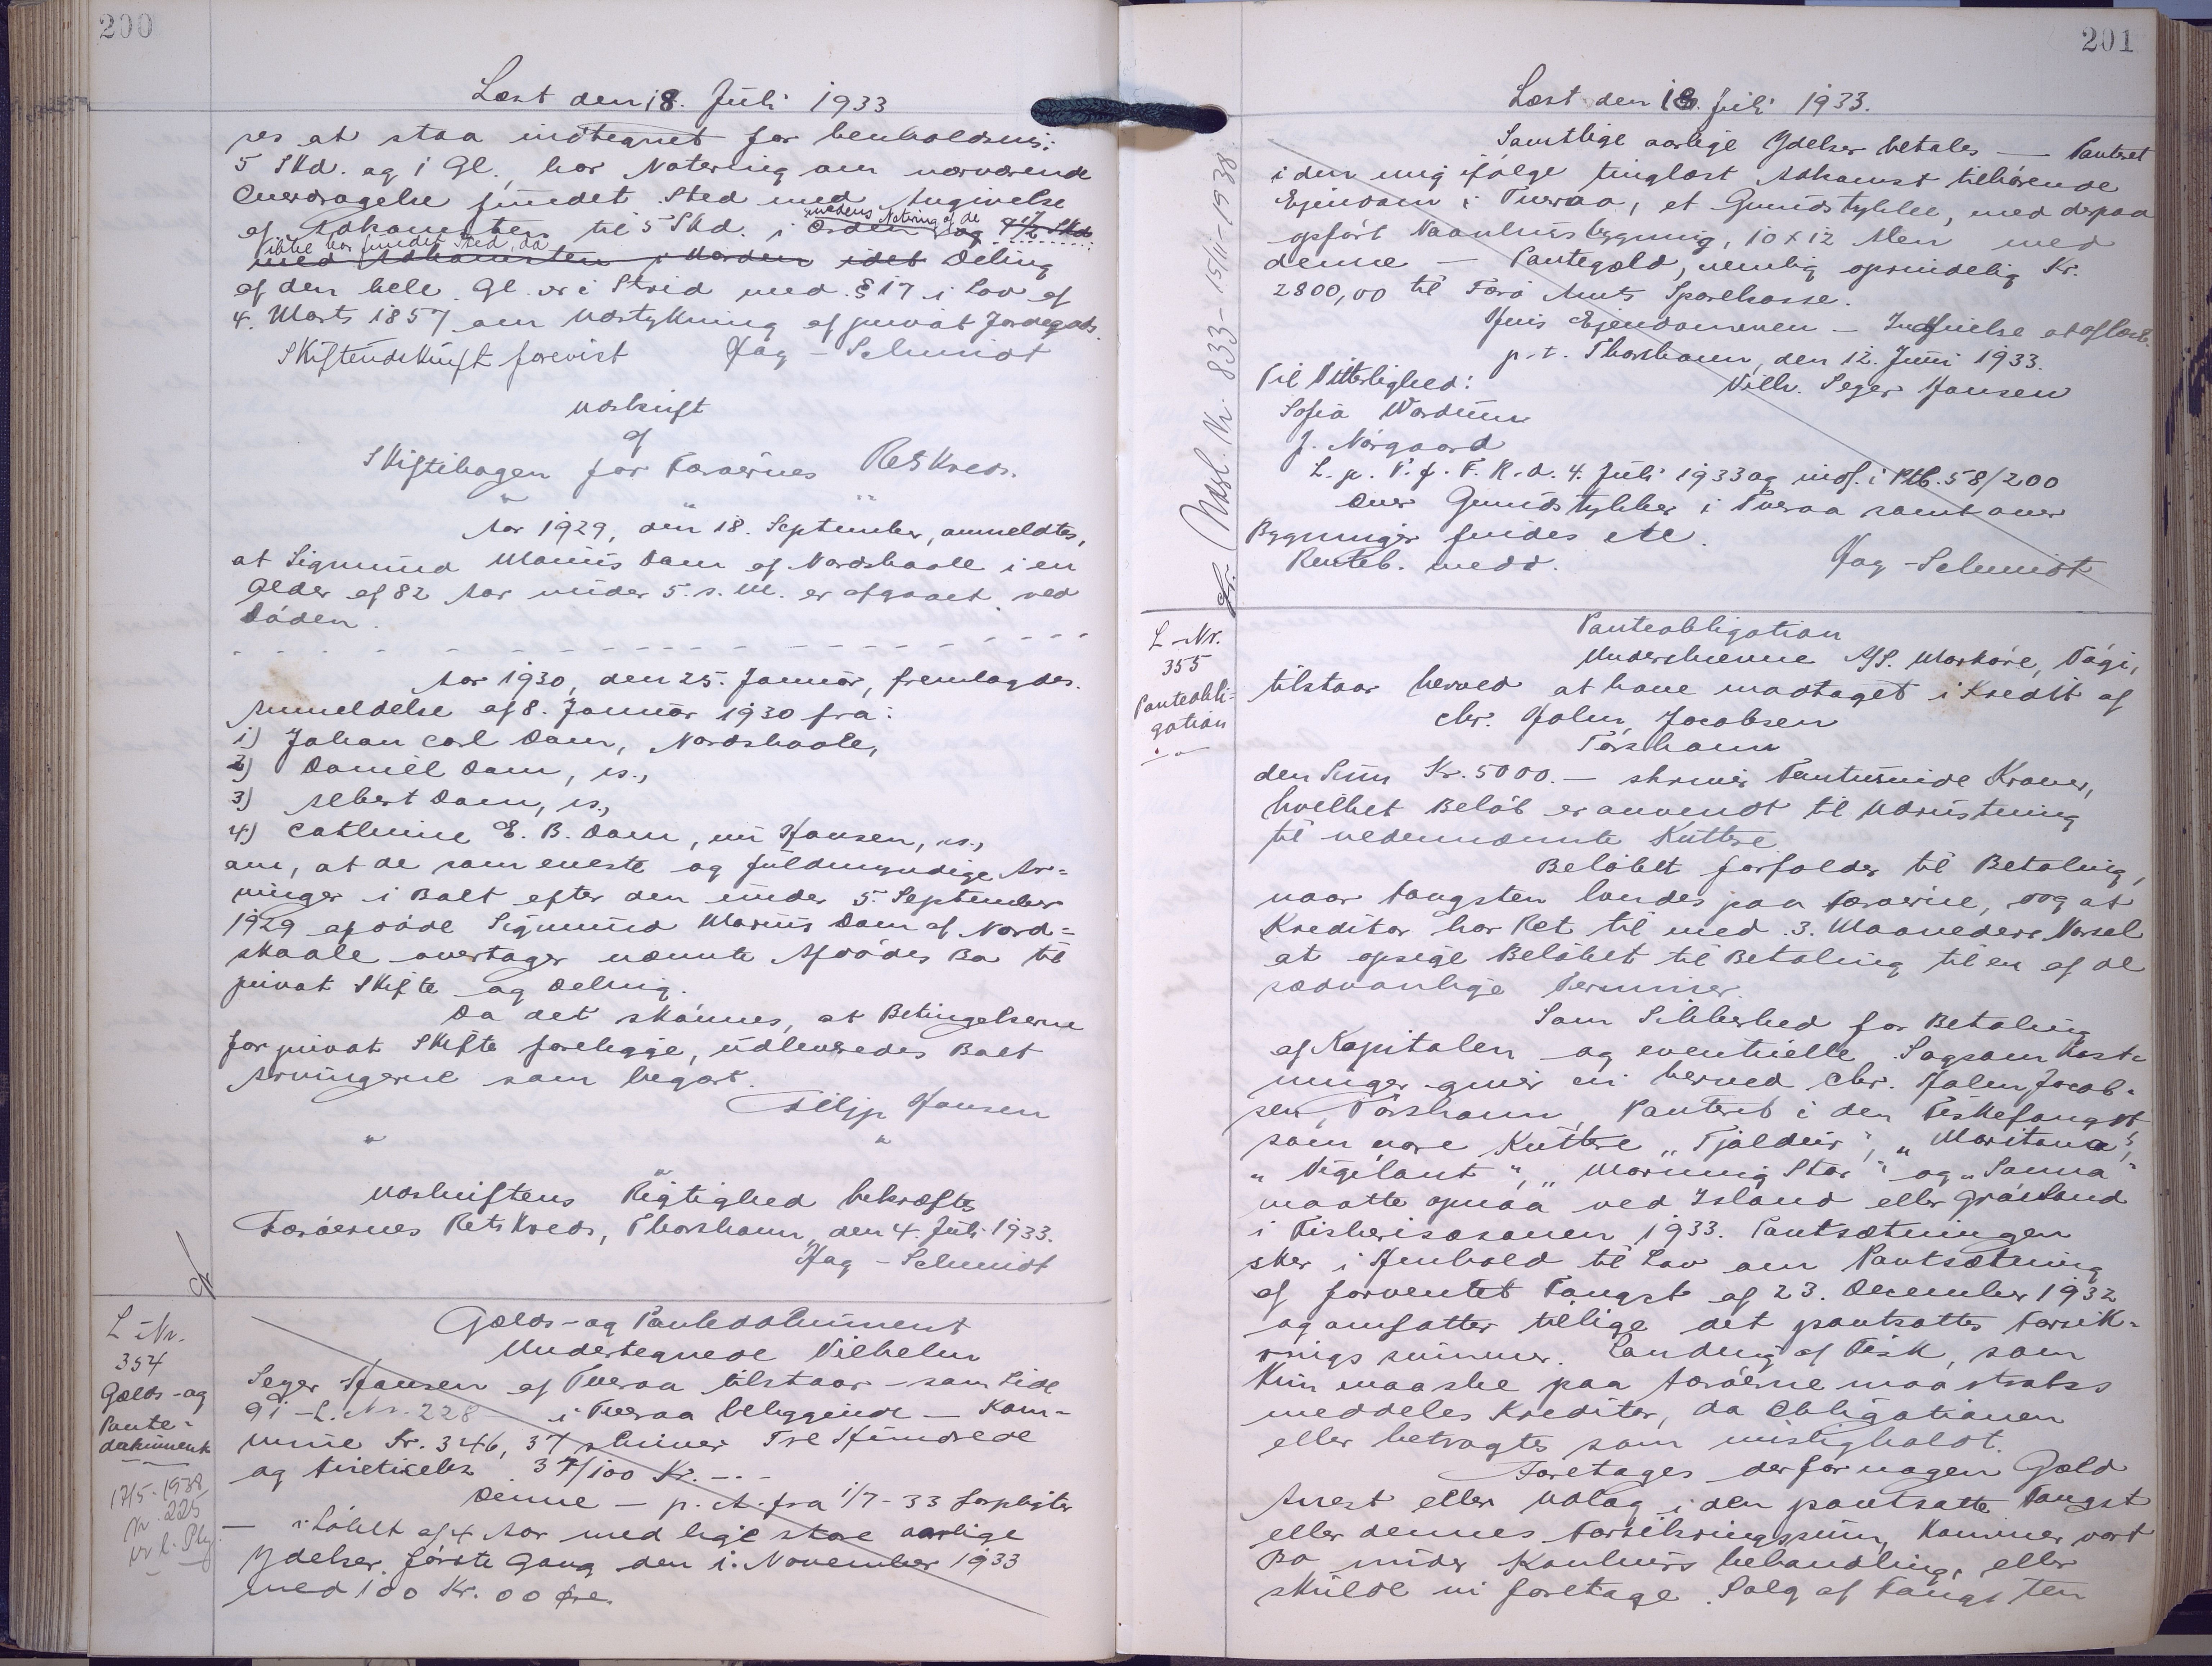 200
Læst den 18. Juli 1933
ses at staa indtegnet for henholdsvis:
5 Skd. og 1 Gl., har Notering om nærværende
Overdragelse fundet Sted med Angivelse
af Adkomsten til 5 Skd. i Orden medens Notering af de 4½ Skd
ikke har fundet Sted, da Deling
af den hele Gl. er i Strid med § 17 i Lov af
4. Marts 1857 om Udstykning af privat Jordegods.
Skifteudskrift forevist Hag-Schmidt
Udskrift
af
Skiftebogen for Færøernes Retskreds.
Aar 1929, den 18. September, anmeldtes,
at Sigmund Marius Dam af Nordskaale i en
Alder af 82 Aar under 5. s. M. er afgaaet ved
Døden.
Aar 1930, den 25. Januar, fremlagdes
Anmeldelse af 8. Januar 1930 fra:
1) Johan Carl Dam, Nordskaale,
2) Daniel Dam, is.,
3) Albert Dam, is.,
4) Cathrine E. B. Dam, f. Hansen, is.,
om, at de som eneste og fuldmyndige Ar=
vinger i Boet efter den under 5. September
1929 afdøde Sigmund Marius Dam af Nord=
skaale overtager nævnte Afdødes Bo til
privat Skifte og Deling.
Da det skønnes, at Betingelserne
for privat Skifte foreligge, udleveredes Boet
Arvingerne som begært.
Filip Hansen
Udskriftens Rigtighed bekræftes
Færøernes Retskreds, Thorshavn, den 4. Juli 1933.
Hag-Schmidt
L-Nr.
354
Gælds-og
Pante=
dokument
17/5-1938
Nr. 225
Gælds-og Pantedokument
Undertegnede Vilhelm
Seger Hansen af Tveraa tilstaar - som Side
91 - L. Nr. 228 - i Tveraa beliggende - Kom=
mune Kr. 346, 37 skriver Tre Hundrede
og 37/100 Kr. -.-
Denne - p. A. fra 1/7-33 forpligter
- i Løbet af 4 Aar med lige store aarlige
Ydelser første Gang den 1. November 1933
med 100 Kr. 00 Øre.
201
Læst den 18. Juli 1933.
Samtlige aarlige Ydelser betales - Panteret
i den mig ifølge tinglæst Adkomst tilhørende
Ejendom i Tveraa, et Grundstykke, med derpaa
opført Vaanhusbygning, 10 x 12 Alen med
denne - Pantegæld, nemlig oprindelig Kr.
2800,00 til Færø Amts Sparekasse.
Hvis Ejendommen - Indfrielse at aflæse.
p. t. Thorshavn, den 12. Juni 1933.
Til Vitterlighed: Vilh. Seger Hansen
Sofia Wardum
J. Nørgaard
L. p. T. f. F. R. d. 4. Juli 1933 og indf. i Ptb. 58/200
Over Grundstykker i Tveraa samt over
Bygninger findes etc.
Renteb. medd. Hag-Schmidt
Nr. 833-15/11-1938
L-Nr.
355
Panteobli-
gation
Panteobligation
Underskrevne A/S. Marköre, Vági,
tilstaar herved at have modtaget i Kredit af
Chr. Holm Jacobsen
Tórshavn
den Sum Kr. 5000.- skriver Femtusinde Kroner,
hvilket Beløb er anvendt til Udrustning
til nedennævnte Kuttere
Beløbet forfalder til Betaling,
naar Fangsten landes paa Færøerne, og at
Kreditor har Ret til med 3. Maaneders Varsel
at opsige Beløbet til Betaling til en af de
sædvanlige Terminer.
Som Sikkerhed for Betaling
af Kapitalen og eventuelle Sagsomkost-
ninger giver vi herved Chr. Holm Jacob-
sen, Tórshavn, Panteret i den Fiskefangst
som vore Kuttere „Tjaldur“, „Maritana“,
„Vigilant“, „Morning Star“ og „Sanna“
maatte opnaa ved Island eller Grönland
i Fiskerisæsonen 1933. Pantsætningen
sker i Henhold til Lov om Pantsætning
af forventet Fangst af 23. December 1932
og omfatter tillige det pantsattes Forsik-
rings summer. Landing af Fisk, som
kun maa ske paa Færøerne maa straks
meddeles Kreditor, da Obligationen
eller betragtes som misligholdt.
Foretages der for nogen Gæld
Arrest eller Udlæg i den pantsatte Fangst
eller dennes Forsikringssum, kommer vort
Bo under Konkurs behandling, eller
skulde vi foretage Salg af Fangsten